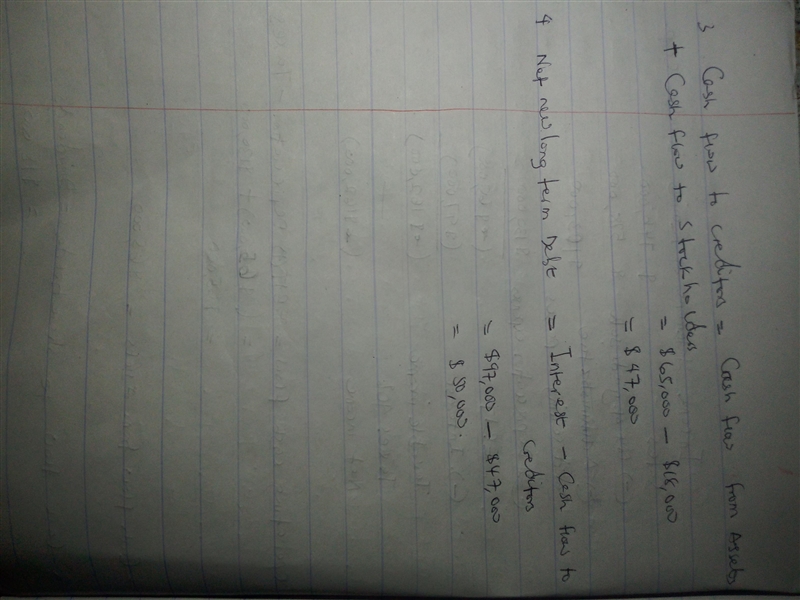 3 Cash flow to creditors = Cash flow from Assets
+ Cash flow to Stockholders
= $65,000 - $18,000
= $47,000
4 Net new long term Debt = Interest - Cash flow to
Creditors
= $97,000 - $47,000
= $50,000.